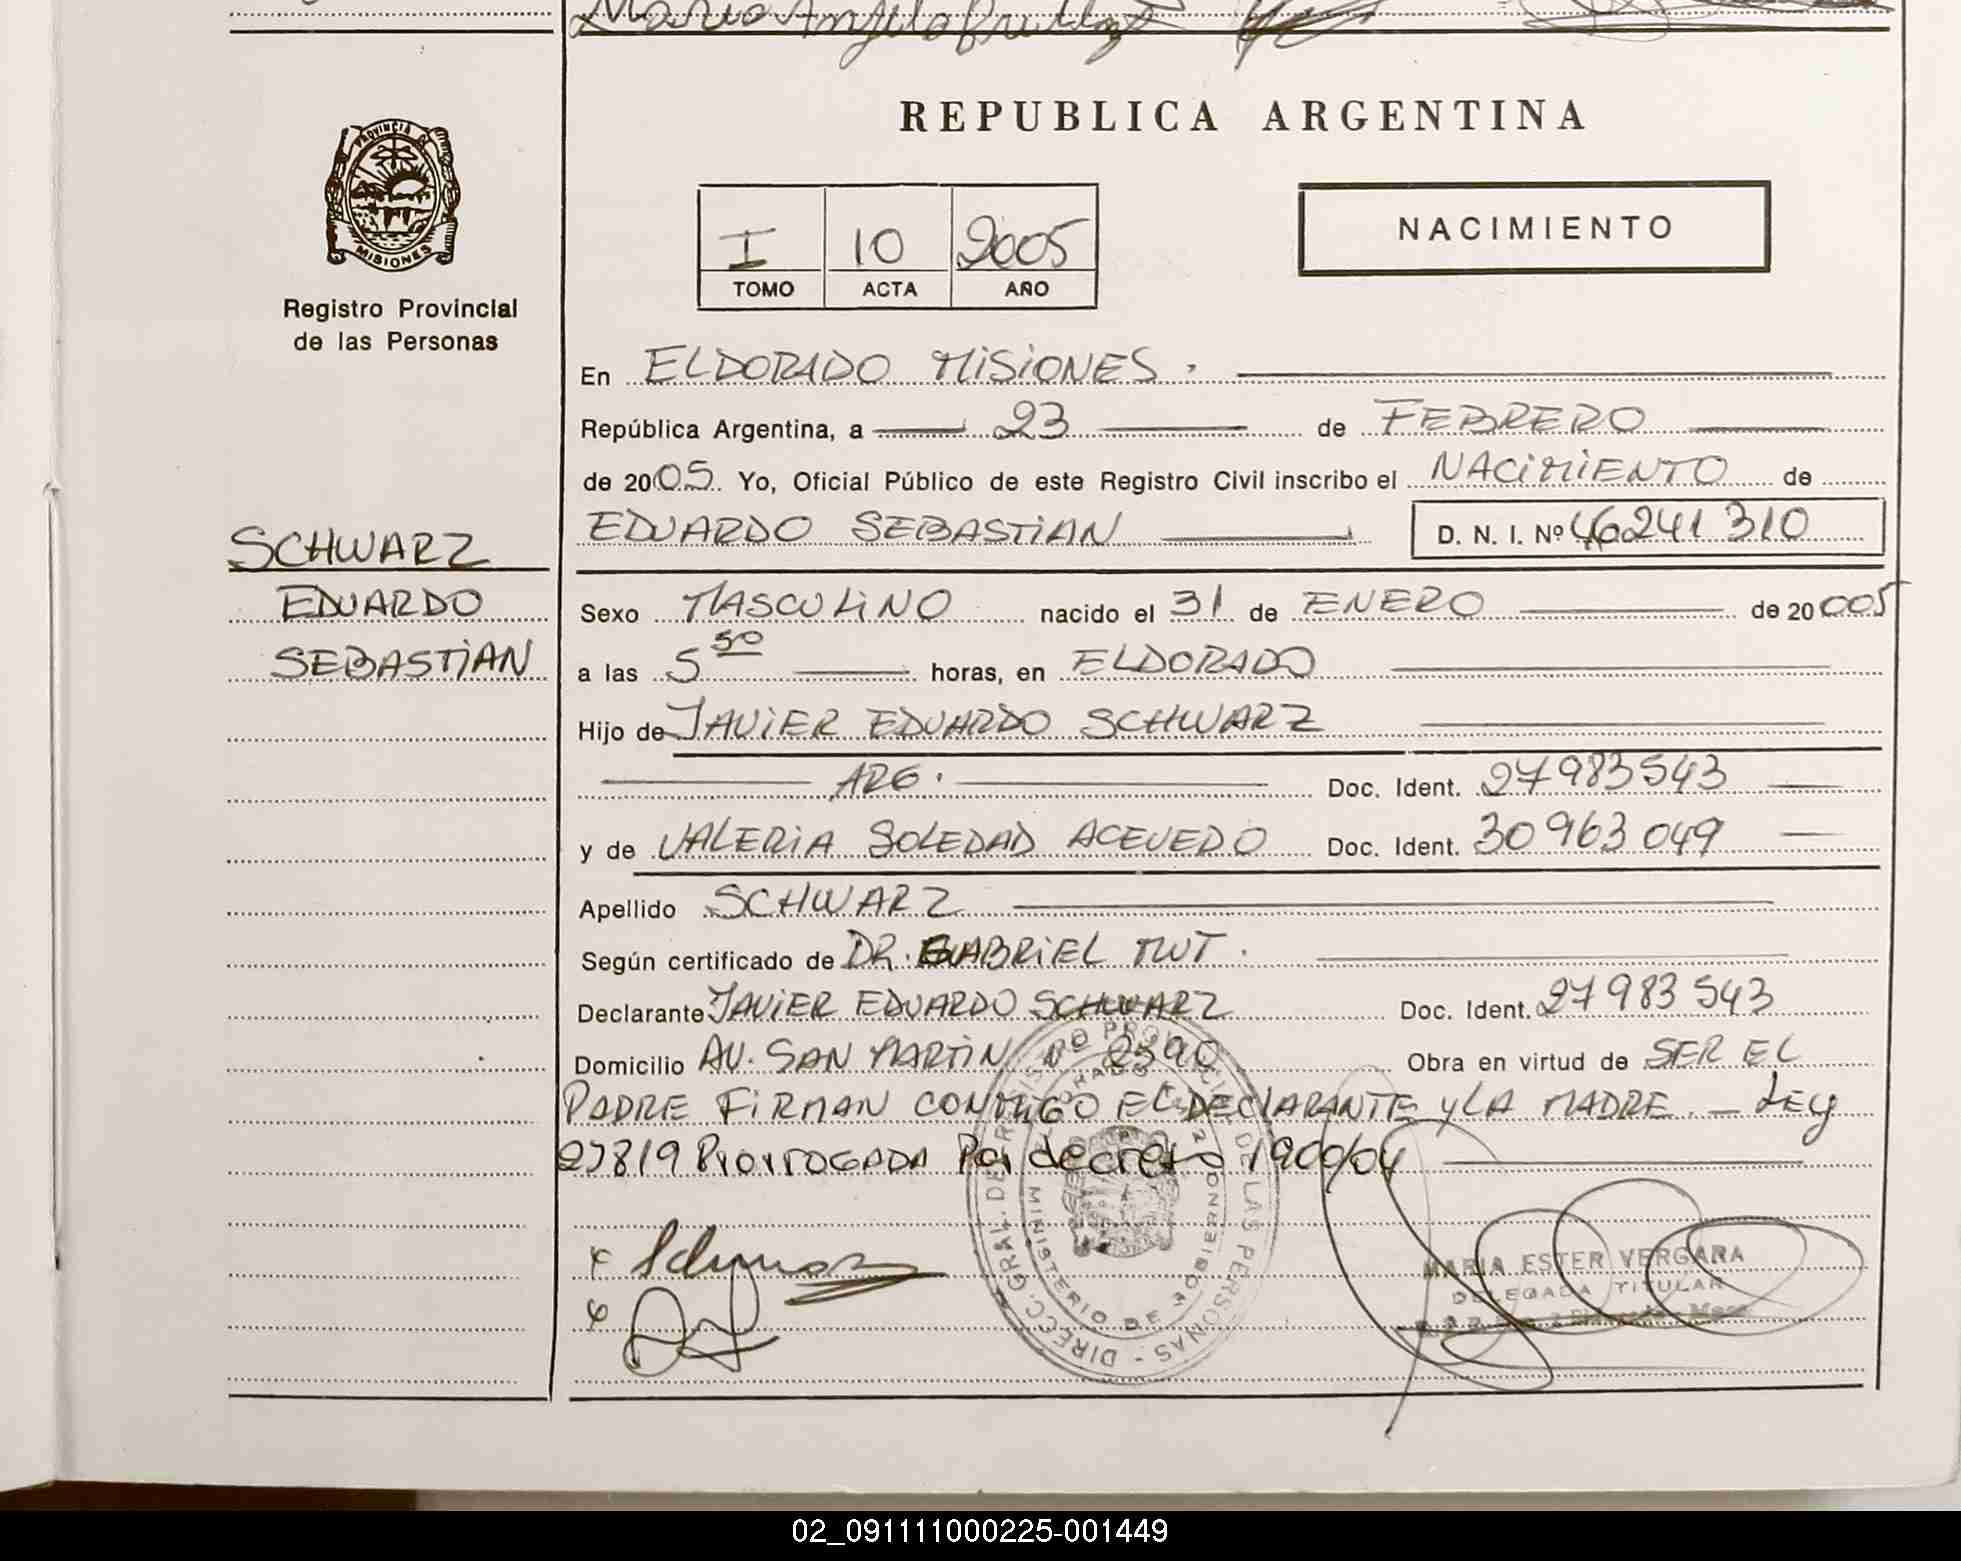 PROVINCIA DE
MISIONES
Registro Provincial
de las Personas
SCHWARZ
EDUARDO
SEBASTIAN
REPUBLICA ARGENTINA
I 10 2005
TOMO ACTA AÑO
NACIMIENTO
En ELDORADO MISIONES.
República Argentina, a 23 de FEBRERO
de 2005 Yo, Oficial Público de este Registro Civil inscribo el NACIMIENTO de
EDUARDO SEBASTIAN D. N. I. Nº 46241310
Sexo MASCULINO nacido el 31 de ENERO de 20005
a las 5 50 horas, en ELDORADO
Hijo de JAVIER EDUARDO SCHWARZ
ARG. Doc. Ident. 27983543
y de VALERIA SOLEDAD ACEVEDO Doc. Ident. 30963049
Apellido SCHWARZ
Según certificado de DR. GABRIEL
Declarante JAVIER EDUARDO SCHWARZ Doc. Ident. 27983543
Domicilio AV. SAN MARTIN Nº Obra en virtud de SER EL
PADRE FIRMAN CONMIGO EL DECLARANTE y LA MADRE. – Ley
PRORROGADA Por decreto 1900/04
DIRECC. GRAL. DE REGISTRO PROVINCIAL DE LAS PERSONAS -
MINISTERIO DE GOBIERNO
MARIA ESTER VERGARA
DELEGADA TITULAR
02_091111000225-001449